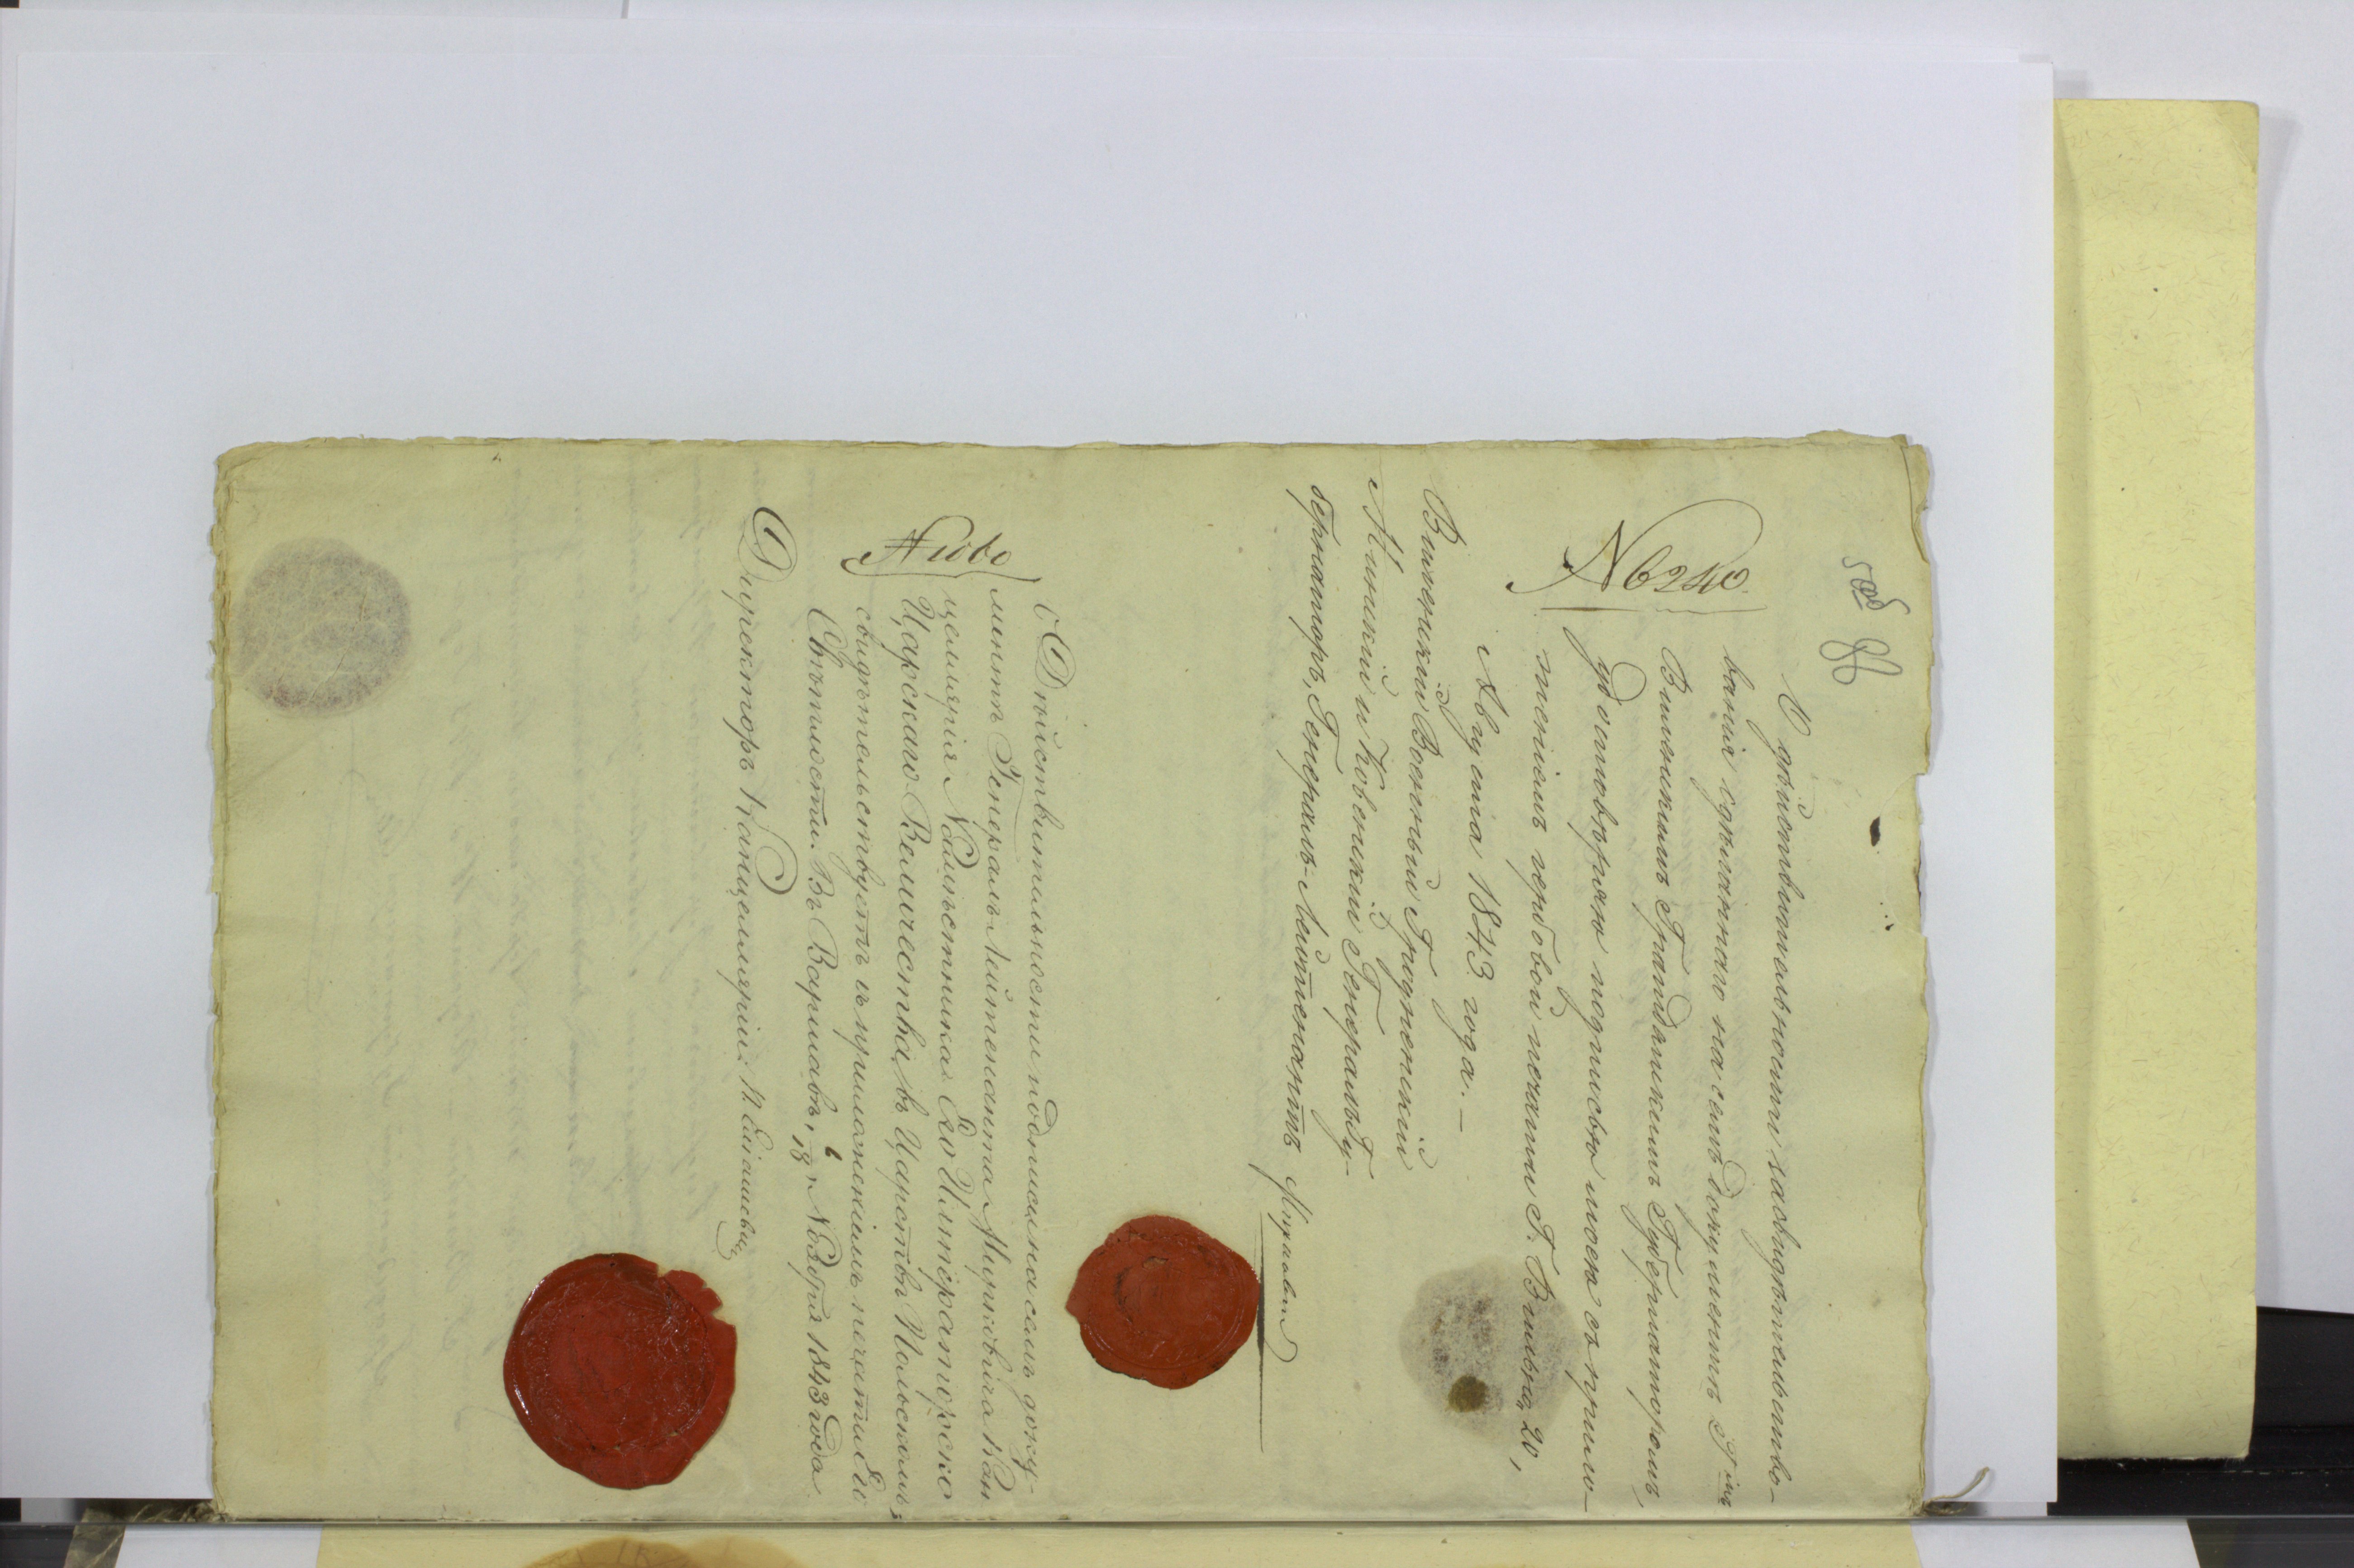 50об
86
О дѣйствительности засвидѣтельство-
ванія сдѣланнаго на семъ документѣ Гнмъ
Виленскимъ Гражданскимъ Губернаторомъ,
удостовѣряю подписью моею съ прило-
женіемъ гербовой печати Г. Вильна, 20,
Августа 1843 года.—
N 6240.
Виленскій Военный Гродненскій
Минскій и Ковенскій Генералъ Гу-
бернаторъ, Генералъ-Лейтенантъ Мирковичъ
Дѣйствительность подписи на семъ доку-
ментѣ Генералъ Лейтенанта Мирковича Кан
целярія Намѣстника Его Императорско
Царскаго Величества, въ Царствѣ Польскомъ,
свидѣтельствуетъ съ приложеніемъ печати Его
Свѣтлости. Въ Варшавѣ, 6/18 Ноября 1843 года.
N
Директоръ Канцеляріи: